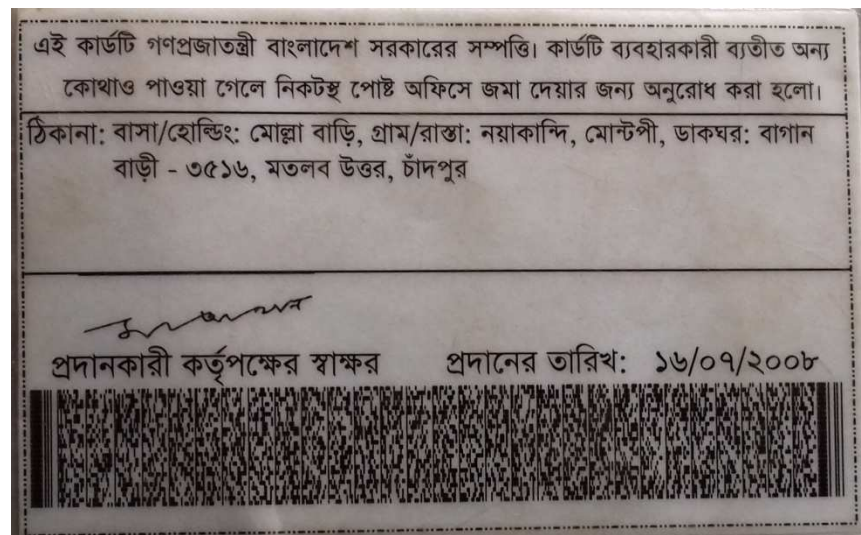 এই কার্ডটি গণপ্রজাতন্ত্রী বাংলাদেশ সরকারের সম্পত্তি। কার্ডটি ব্যবহারকারী ব্যতীত অন্য
কোথাও পাওয়া গেলে নিকটস্থ পোষ্ট অফিসে জমা দেয়ার জন্য অনুরোধ করা হলো।
ঠিকানা: বাসা/হোল্ডিং: মোল্লা বাড়ি, গ্রাম/রাস্তা: নয়াকান্দি, মোন্টপী, ডাকঘর: বাগান
বাড়ী - ৩৫১৬, মতলব উত্তর, চাঁদপুর
প্রদানকারী কর্তৃপক্ষের স্বাক্ষর প্রদানের তারিখ: ১৬/০৭/২০০৮